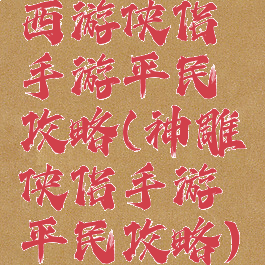 西游侠侣
手游平民
攻略(神雕
侠侣手游
平民攻略)